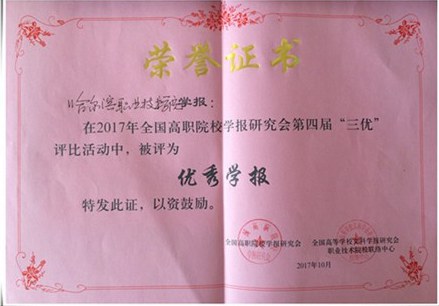 荣誉证书
哈尔滨职业技术学院学报：
在2017年全国高职院校学报研究会第四届“三优”
评比活动中，被评为
优秀学报
特发此证，以资鼓励。
全国高职院校学报研究会 全国高等学校文科学报研究会
职业技术院校联络中心
2017年10月